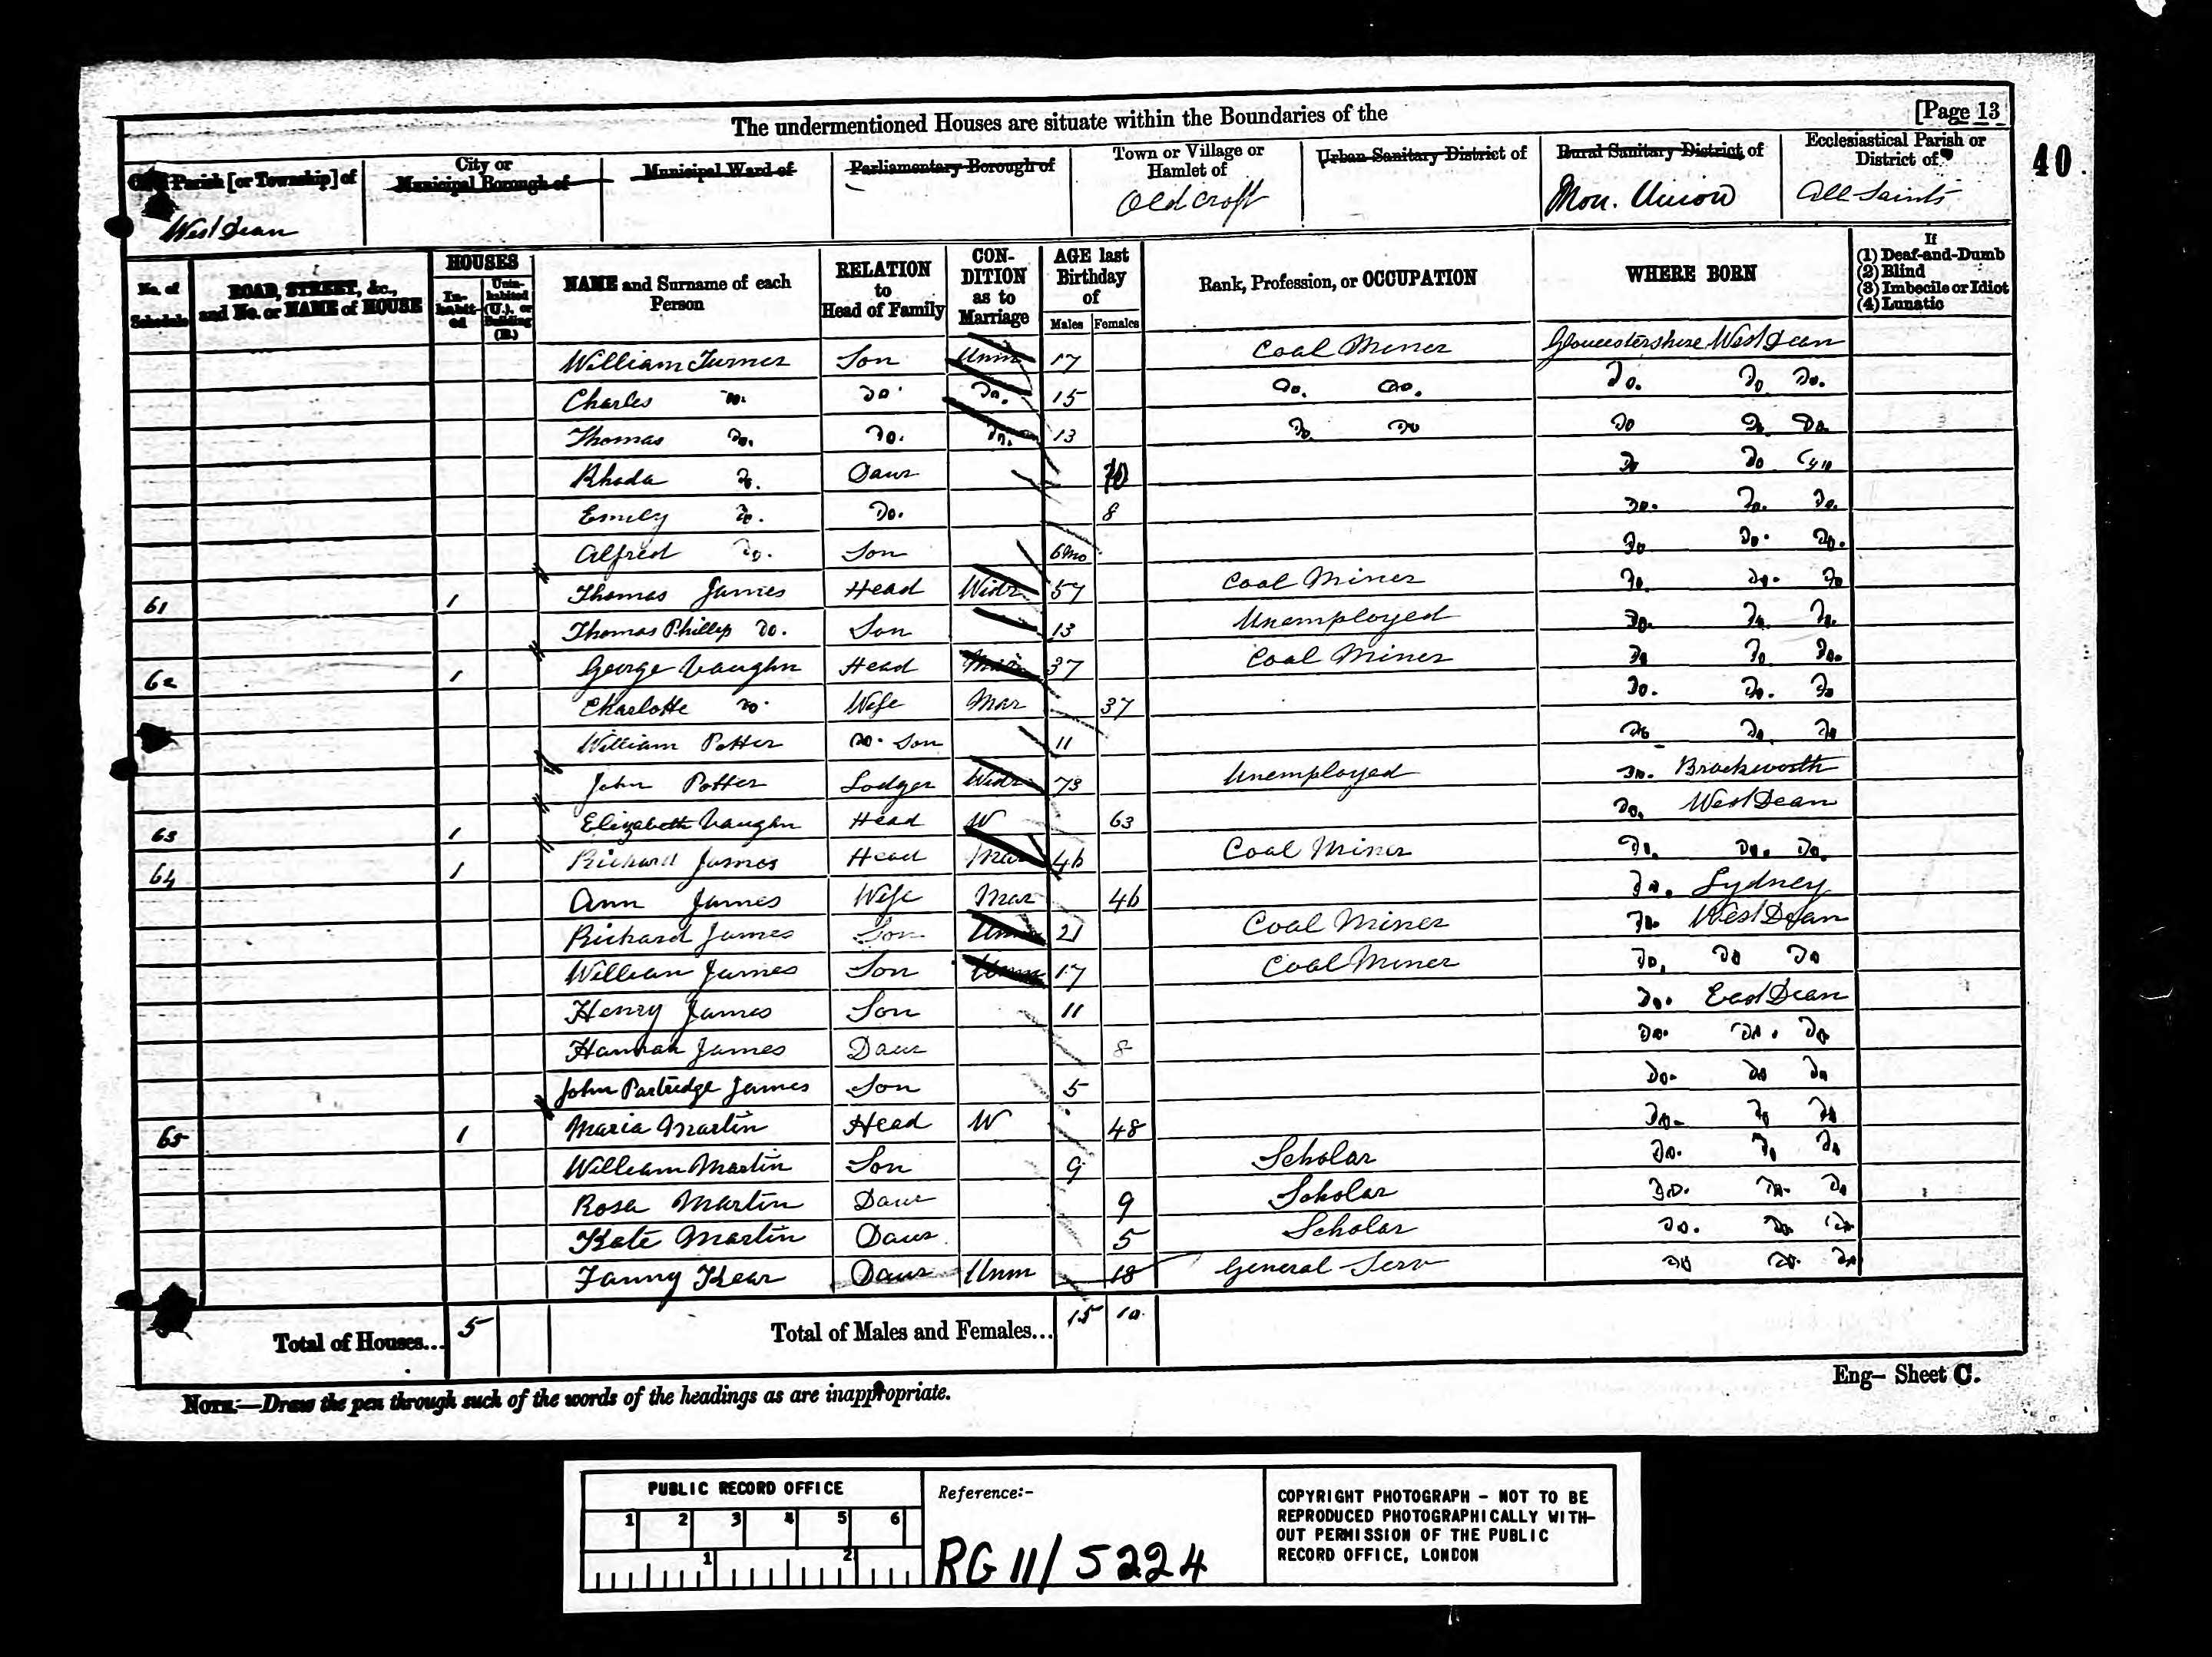 The undermentioned Houses are situate within the Boundaries of the
[Page 13
40
Parish [or Township] of
City or Municipal Borough of
Municipal Ward of
Parliamentary Borough of
Town or Village or Hamlet of
Urban Sanitary District of
Rural Sanitary District of
Ecclesiastical Parish or District of
West Dean
Oldcroft
Mon. Union
All Saints
No. of Schedule
ROAD, STREET, &c., and No. or NAME of HOUSE
HOUSES
In-habit-ed
Unin-habited (U.), or Building (B.)
NAME and Surname of each Person
RELATION to Head of Family
CON-DITION as to Marriage
AGE last Birthday of
Males
Females
Rank, Profession, or OCCUPATION
WHERE BORN
If
(1) Deaf-and-Dumb
(2) Blind
(3) Imbecile or Idiot
(4) Lunatic
William Turner Son Unm 17 Coal Miner Gloucestershire West Dean
Charles Do. Do Do. 15 Do. Do. Do. Do Do.
Thomas Do. Do. Do. 13 Do Do Do Do Do.
Rhoda Do. Daur 10 Do Do
Emily Do. Do. 8 Do. Do. Do.
Alfred Do. Son 6mo Do Do. Do.
61 1 Thomas James Head Widr 57 Coal Miner Do. Do. Do
Thomas Phillip Do. Son 13 Unemployed Do. Do. Do.
62 1 George Vaughn Head Mar 37 Coal Miner Do Do Do.
Charlotte Do. Wife Mar 37 Do. Do. Do
William Potter Do. Son 11 Do Do. Do
John Potter Lodger Widr 73 Unemployed Do. Brockworth
63 1 Elizabeth Vaughn Head W 63 Do. West Dean
64 1 Richard James Head Mar 46 Coal Miner Do. Do. Do.
Ann James Wife Mar 46 Do. Lydney
Richard James Son Unm 21 Coal Miner Do. West Dean
William James Son Unm 17 Coal Miner Do. Do Do
Henry James Son 11 Do. East Dean
Hannah James Daur 8 Do. Do. Do
John Partridge James Son 5 Do. Do Do
65 1 Maria Martin Head W 48 Do. Do Do
William Martin Son 9 Scholar Do. Do Do
Rosa Martin Daur 9 Scholar Do. Do. Do
Kate Martin Daur 5 Scholar Do. Do Do
Fanny Kear Daur Unm 18 General Serv Do Do. Do
Total of Houses... 5
Total of Males and Females... 15 10
Eng– Sheet C.
NOTE.—Draw the pen through such of the words of the headings as are inappropriate.
PUBLIC RECORD OFFICE
1 2 3 4 5 6
1 2
Reference:-
RG 11/5224
COPYRIGHT PHOTOGRAPH - NOT TO BE
REPRODUCED PHOTOGRAPHICALLY WITH-
OUT PERMISSION OF THE PUBLIC
RECORD OFFICE, LONDON